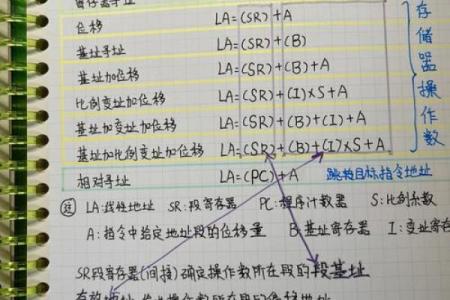 位移 LA=(SR)+A
基址寻址 LA=(SR)+(B)
基址加位移 LA=(SR)+(B)+A
比例变址加位移 LA=(SR)+(I)×S+A
基址加变址加位移 LA=(SR)+(B)+(I)+A
基址加比例变址加位移 LA=(SR)+(B)+(I)×S+A
存储器操作数
相对寻址 LA=(PC)+A 跳转目标指令地址
注 LA:线性地址 SR:段寄存器 PC:程序计数器 S:比例系数
A:指令中给定地址段的位移量 B:基址寄存器 I:变址寄存
SR段寄存器(间接)确定操作数所在段的段基址